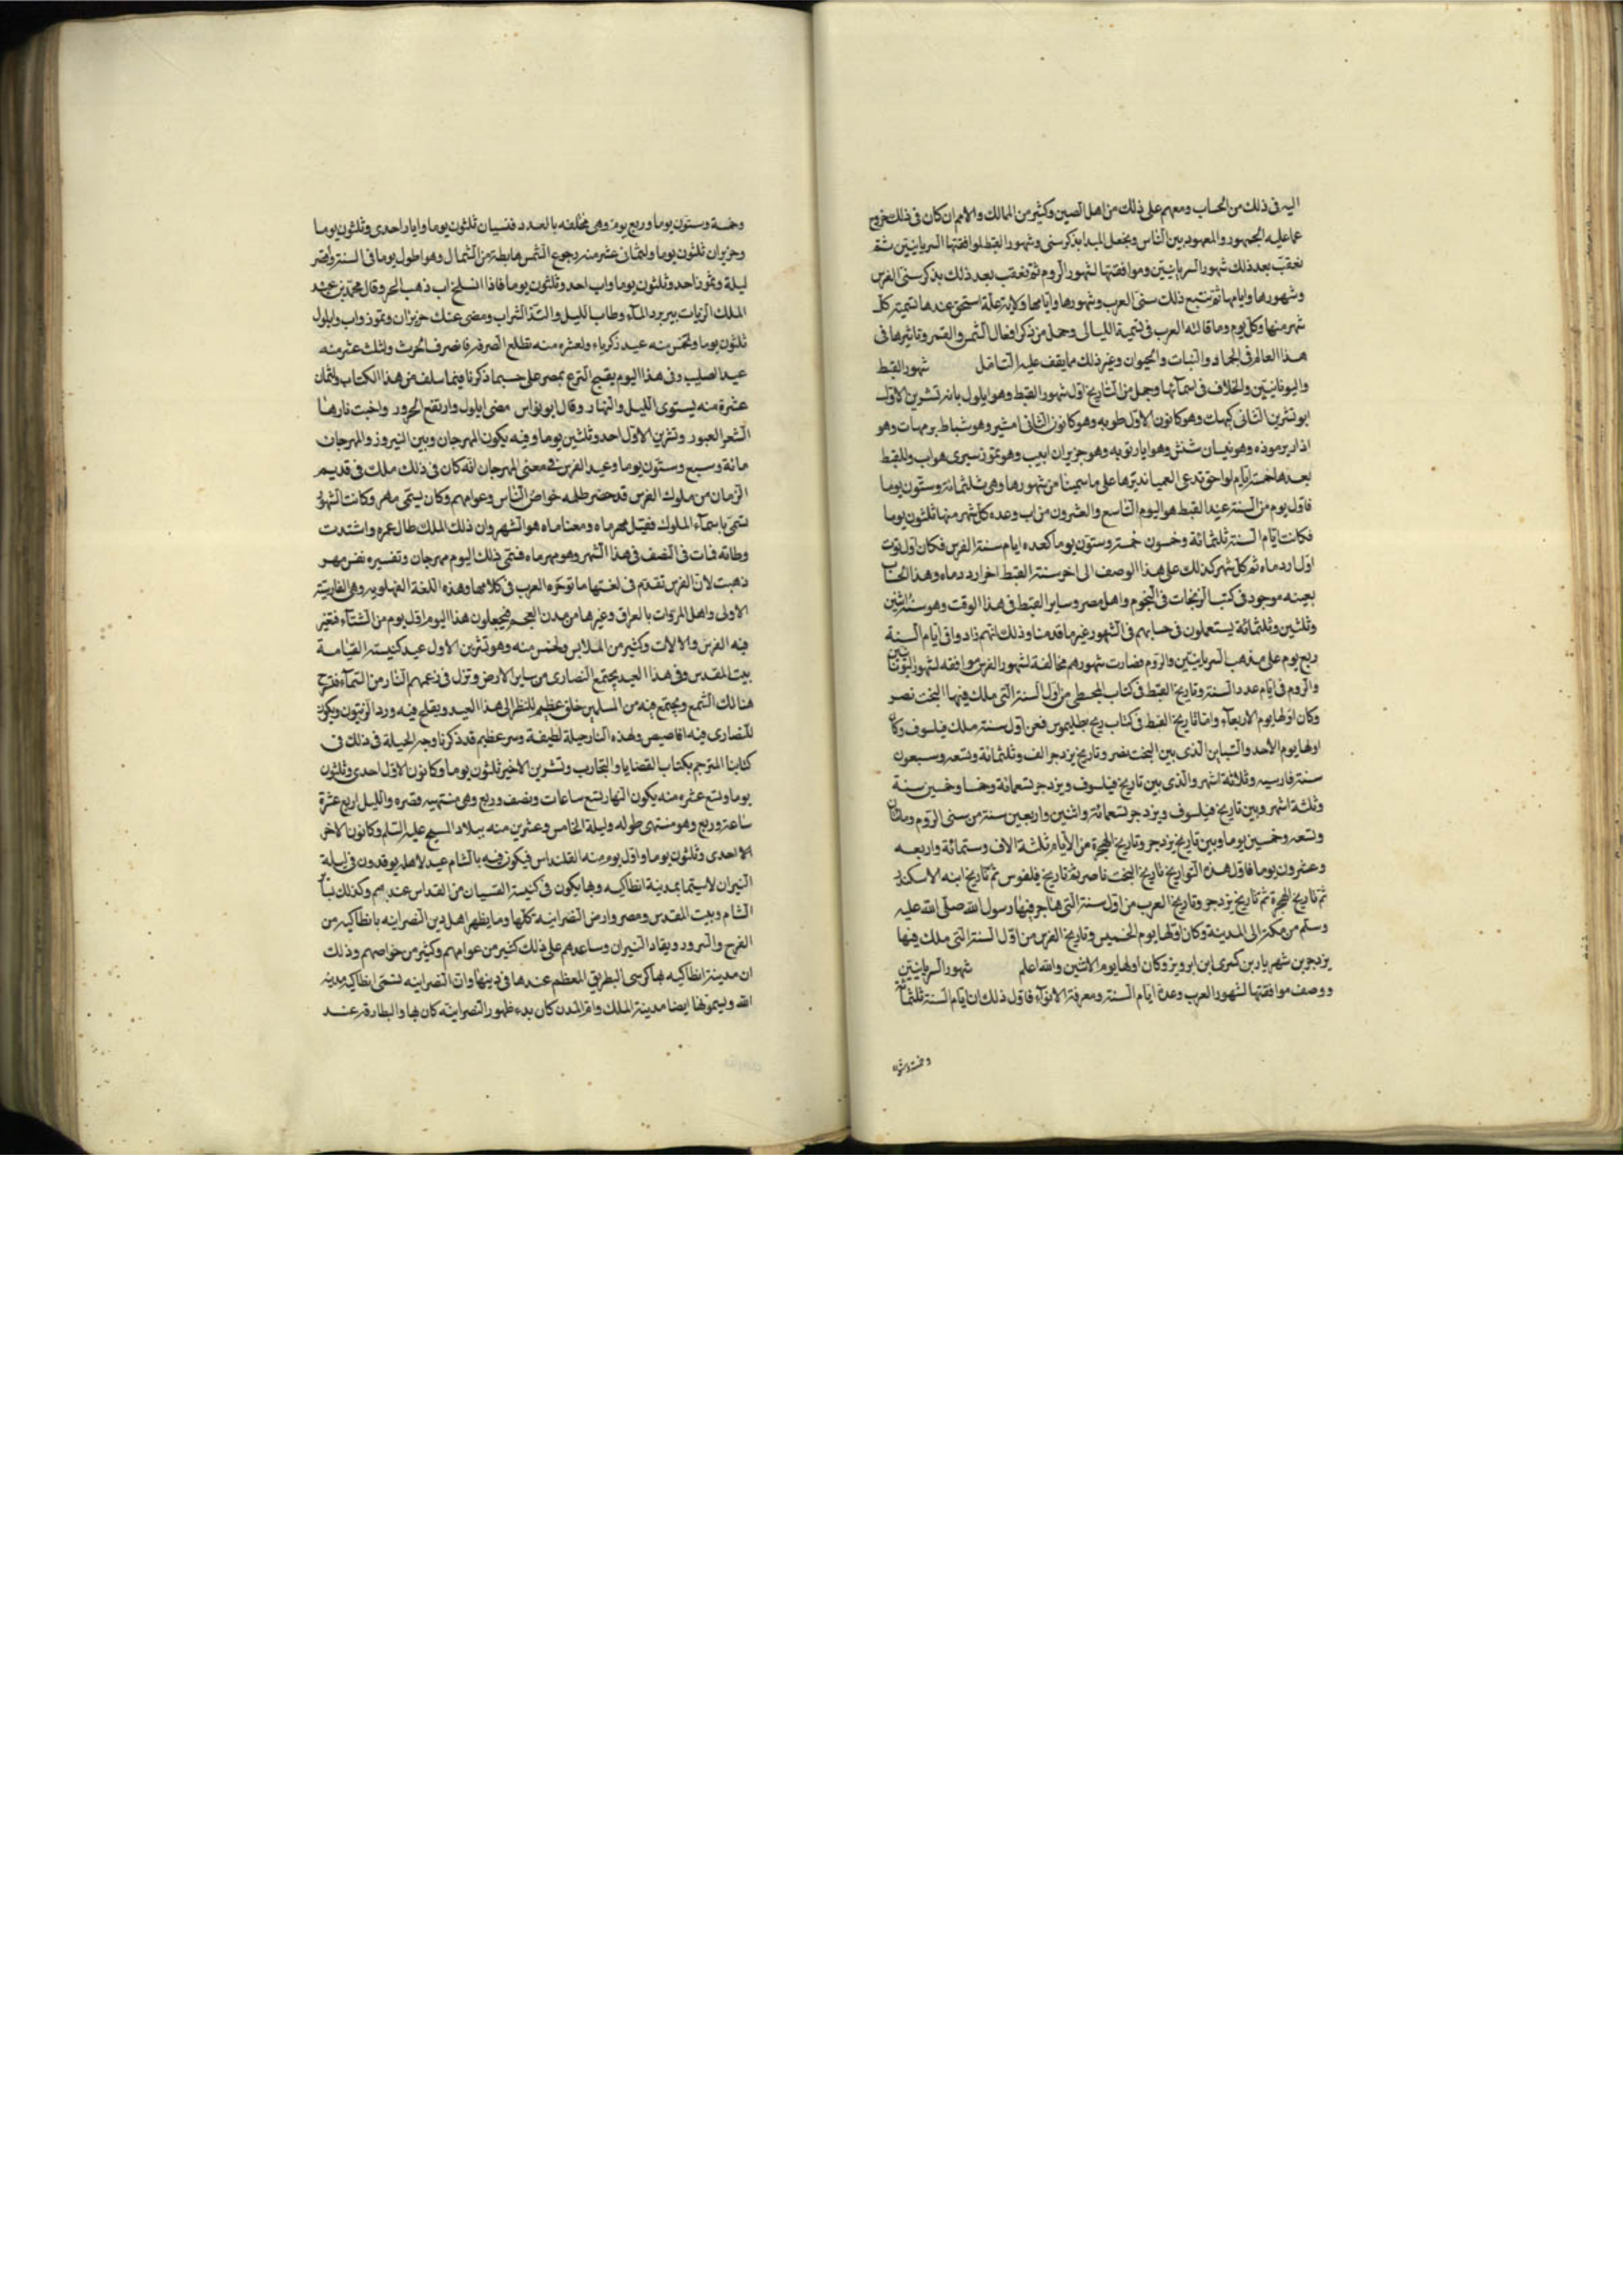 اليه فى ذلك من الحساب ومعهم على ذلك من اهل الصين وكثير من الممالك والامم ان كان فى ذلك خروج
عما عليه الجمهور والمعهود بين الناس ونجعل المبدا بذكر سنى وشهور القبط لموافقتها السريانيين ثم
نعقب بعد ذلك شهور السريانيين وموافقتها لشهور الروم ثم نعقب بعد ذلك بذكر سنى الفرس
وشهورها وايامها ثم نتبع ذلك سنى العرب وشهورها وايامها ولاية علة استحق عندها تسمية كل
شهر منها وكل يوم وما قالته العرب فى تسمية الليالى وجمل من ذكر افعال الشمس والقمر وتاثيرها فى
هذا العالم فى الجماد والنبات والحيوان وغير ذلك مما يقف عليه التامل شهور القبط
واليونانيين والخلاف فى اسمآئها وجمل من التاريخ اول شهور القبط وهو ايلول بابه تشرين الاول
ابو تشرين الثانى كيهك وهو كانون الاول طوبه وهو كانون الثانى امشير وهو شباط برمهات وهو
اذار برموده وهو نيسان بشنش وهو ايار بونه وهو حزيران ابيب وهو تموز مسرى هو اب وللقبط
بعدها خمسة ايام لواحق تدعى العميا نديرها على ما سمينا من شهورها وهى ثلثمائة وستون يوما
فاول يوم من السنة عيد القبط هو اليوم التاسع والعشرون من اب وعده كل شهر منها ثلثون يوما
فكانت ايام السنة ثلثمائة وخمسون خمسة وستون يوما كعده ايام سنة الفرس فكان اول توت
اول اردماه ثم كل شهر كذلك على هذا الوصف الى اخر سنة القبط اخر اردماه وهذا الحساب
بعينه موجود فى كتب الزيجات فى النجوم واهل مصر وساير القبط فى هذا الوقت وهو سنة اثنين
وثلثين وثلثمائة يستعملون فى حسابهم فى الشهور غير ما قدمنا وذلك انهم زادوا فى ايام السنة
ربع يوم على مذهب السريانيين والروم فصارت شهورهم مخالفة لشهور الفرس موافقه لشهور اليونانيين
والروم فى ايام عدد السنة وتاريخ القبط فى كتاب المجسطى من اول السنة التى ملك فيها البخت نصر
وكان اولها يوم الاربعآء واما تاريخ القبط فى كتاب زيج بطليموس فعن اول سنة ملك فيلسوف وكان
اولها يوم الأحد والتباين الذى بين البخت نصر وتاريخ يزدجر الف وثلثمائة وتسعه وسبعون
سنة فارسيه وثلاثة اشهر والذى بين تاريخ فيلسوف ويزدجر تسعمائة وخمسا وخمسين سنة
وثلثة اشهر وبين تاريخ فيلسوف ويزدجر تسعمائة واثنين واربعين سنة من سنى الروم ومائتان
وتسعه وخمسين يوما وبين تاريخ يزدجر وتاريخ الهجرة من الأيام ثلثة الاف وستمائة واربعه
وعشرون يوما فاول هذه التواريخ تاريخ البخت ناصر ثم تاريخ فيلفوس ثم تاريخ ابنه الاسكندر
ثم تاريخ الهجرة ثم تاريخ يزدجر وتاريخ العرب من اول سنة التى هاجر فيها رسول الله صلى الله عليه
وسلم من مكة الى المدينة وكان اولها يوم الخميس وتاريخ الفرس من اول السنة التى ملك فيها
يزدجر بن شهريار بن كسرى ابن ابرويز وكان اولها يوم الاثنين والله اعلم شهور السريانيين
ووصف موافقتها لشهور العرب وعدة ايام السنة ومعرفة الانوآء فاول ذلك ان ايام السنة ثلثمائة
وخمسة وستون
وخمسة وستون يوما وربع يوم وهى مختلفه بالعدد فنيسان ثلثون يوما وايار احدى وثلثون يوما
وحزيران ثلثون يوما ولثمان عشر منه رجوع الشمس هابطة من الشمال وهو اطول يوم فى السنة واقصر
ليلة وتموز احد وثلثون يوما واب احد وثلثون يوما فاذا انسلخ اب ذهب الحر وقال محمد بن عبد
الملك الزيات برد المآء وطاب الليل والتذ الشراب ومضى عنك حزيران وتموز واب وايلول
ثلثون يوما ولخمس منه عيد زكرياء ولعشره منه تطلع الصرفة فانصراف الحرث ولثلث عشر منه
عيد الصليب وفى هذا اليوم يفتح الترع بمصر على حسب ما ذكرنا فيما سلف من هذا الكتاب ولثمان
عشرة منه يستوى الليل والنهار وقال ابو نواس مضى ايلول وارتفع الحرور واخبت نارها
الشعر العبور وتشرين الاول احد وثلثين يوما وفيه يكون المهرجان وبين النيروز والمهرجان
مائة وسبع وستون يوما وعيد الفرس فى معنى المهرجان انه كان فى ذلك ملك فى قديم
الزمان من ملوك الفرس قد حضر ظلمه خواص الناس وعوامهم وكان يسمى مهر وكانت الشهور
تسمى باسمآء الملوك فقيل مهرماه ومعنا ماه هو الشهر وان ذلك الملك طال عمره واشتدت
وطاته فمات فى النصف فى هذا الشهر وهو مهرماه فسمى ذلك اليوم مهرجان وتفسيره نفس مهر
ذهبت لان الفرس تقدم فى لغتها ما توخره العرب فى كلامها وهذه اللغة الفهلويه وهى الفارسية
الاولى واهل المروات بالعراق وغيرها من مدن العجم فيجعلون هذا اليوم اول يوم من الشتآء فتغير
فيه الفرش والالات وكثير من الملابس ولخمس منه وهو تشرين الاول عيد كنيسة القيامة
ببيت المقدس وفى هذا العيد يجتمع النصارى من ساير الارض وتنزل فى زعمهم النار من السمآء فتسرج
هنالك الشمع ويجتمع فيه من المسلمين خلق عظيم للنظر الى هذا العيد ويقلع فيه ورد الزيتون ويكون
للنصارى فيه اقاصيص ولهذه النار حيلة لطيفة وسر عظيم قد ذكرنا وجه الحيلة فى ذلك فى
كتابنا المترجم بكتاب القضايا والتجارب وتشرين الاخير ثلثون يوما وكانون الاول احدى وثلثون
يوما وتسع عشره منه يكون النهار تسع ساعات ونصف وربع وهى منتهيه قصره والليل اربع عشرة
ساعة وربع وهو منتهى طوله وليلة الخامس وعشرين منه ميلاد المسيح عليه السلم وكانون الاخر
الاحدى وثلثون يوما واول يوم منه القلنداس فيكون فيه بالشام عيد لاهله يوقدون فى ليلة
النيران لاسيما بمدينة انطاكيه وبها يكون فى كنيسة القسيان من القداس عندهم وكذلك بساير
الشام وبيت المقدس ومصر وارض النصرانية كلها وما يظهر اهل دين النصرانيه بانطاكيه من
الفرح والسرور ويقاد النيران وساعدهم على ذلك كثير من عوامهم وكثير من خواصهم وذلك
ان مدينة انطاكيه بها كرسى البطريق المعظم عندها فى دينها وان النصرانيه تسمى انطاكيه مدينة
الله ويسمونها ايضا مدينة الملك وام المدن كان بدء ظهور النصرانية كان بها والبطارقة عند